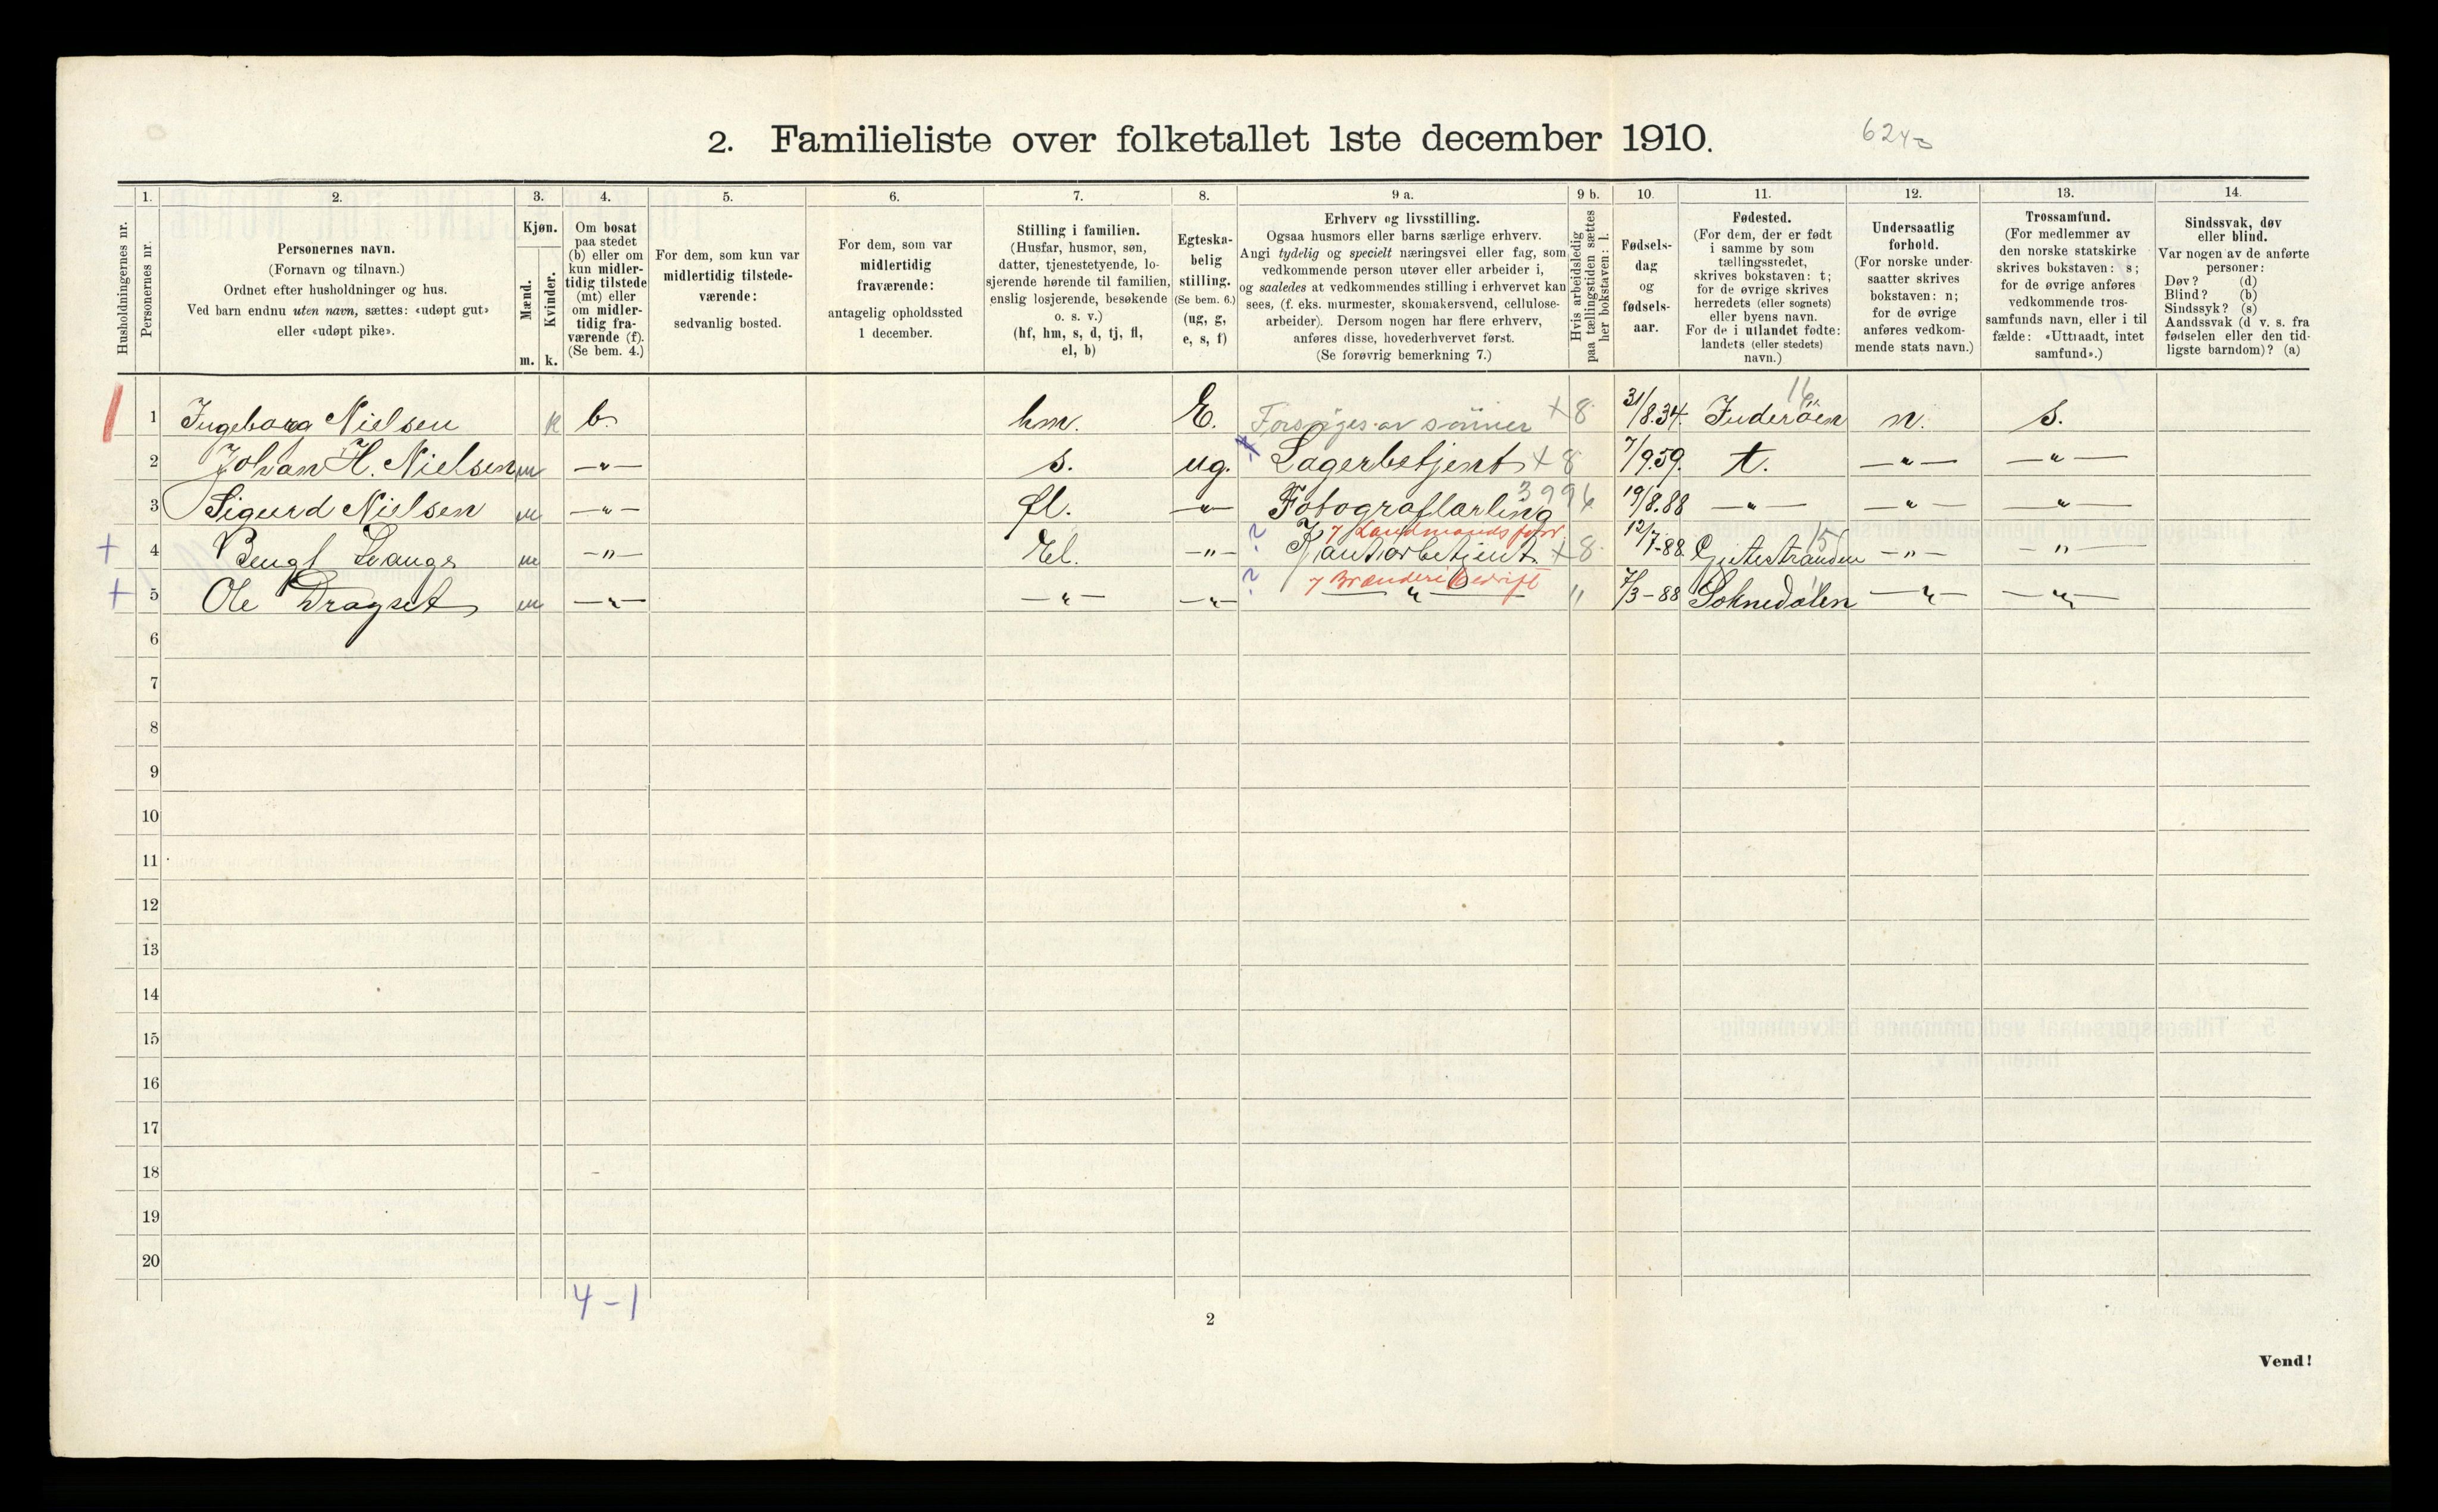 2. Familieliste over folketallet 1ste december 1910.
6240
1. 2. 3. 4. 5. 6. 7. 8. 9 a. 9 b. 10. 11. 12. 13. 14.
Husholdningernes nr.
Personernes nr.
Personernes navn.
(Fornavn og tilnavn.)
Ordnet efter husholdninger og hus.
Ved barn endnu uten navn, sættes: «udøpt gut»
eller «udøpt pike».
Kjøn.
Mænd.
Kvinder.
m. k.
Om bosat
paa stedet
(b) eller om
kun midler-
tidig tilstede
(mt) eller
om midler-
tidig fra-
værende (f).
(Se bem. 4.)
For dem, som kun var
midlertidig tilstede-
værende:
sedvanlig bosted.
For dem, som var
midlertidig
fraværende:
antagelig opholdssted
1 december.
Stilling i familien.
(Husfar, husmor, søn,
datter, tjenestetyende, lo-
sjerende hørende til familien,
enslig losjerende, besøkende
o. s. v.)
(hf, hm, s, d, tj, fl,
el, b)
Egteska-
belig
stilling.
(Se bem. 6.)
(ug, g,
e, s, f)
Erhverv og livsstilling.
Ogsaa husmors eller barns særlige erhverv.
Angi tydelig og specielt næringsvei eller fag, som
vedkommende person utøver eller arbeider i,
og saaledes at vedkommendes stilling i erhvervet kan
sees, (f. eks. murmester, skomakersvend, cellulose-
arbeider). Dersom nogen har flere erhverv,
anføres disse, hovederhvervet først.
(Se forøvrig bemerkning 7.)
Hvis arbeidsledig
paa tællingstiden sættes
her bokstaven: l.
Fødsels-
dag
og
fødsels-
aar.
Fødested.
(For dem, der er født
i samme by som
tællingsstedet,
skrives bokstaven: t;
for de øvrige skrives
herredets (eller sognets)
eller byens navn.
For de i utlandet fødte:
landets (eller stedets)
navn.)
Undersaatlig
forhold.
(For norske under-
saatter skrives
bokstaven: n;
for de øvrige
anføres vedkom-
mende stats navn.)
Trossamfund.
(For medlemmer av
den norske statskirke
skrives bokstaven: s;
for de øvrige anføres
vedkommende tros-
samfunds navn, eller i til
fælde: «Uttraadt, intet
samfund».)
Sindssvak, døv
eller blind.
Var nogen av de anførte
personer:
Døv? (d)
Blind? (b)
Sindssyk? (s)
Aandssvak (d v. s. fra
fødselen eller den tid-
ligste barndom)? (a)
16
1 Ingeborg Nielsen k b. hm. E. Forsørges av sönner +8 31/8.34. Inderöen n. s.
2 Johan H. Nielsen m -"- s. ug. + Lagerbetjent +8 7/9.59. t. -"- -"-
3994
3 Sigurd Nielsen m -"- fl. -"- Fotograflærling 19/8.88 -"- -"- -"-
7 Landmands forr. 15
+ 4 Bengt m -"- El. -"- ? Kontorbetjent +8 12/7-88. -"- -"-
7 Brænderi Bedrift
+ 5 Ole Dragset m -"- -"- -"- ? -"- " 7/3-88 Soknedalen -"- -"-
6
7
8
9
10
11
12
13
14
15
16
17
18
19
20
4-1
2
Vend!